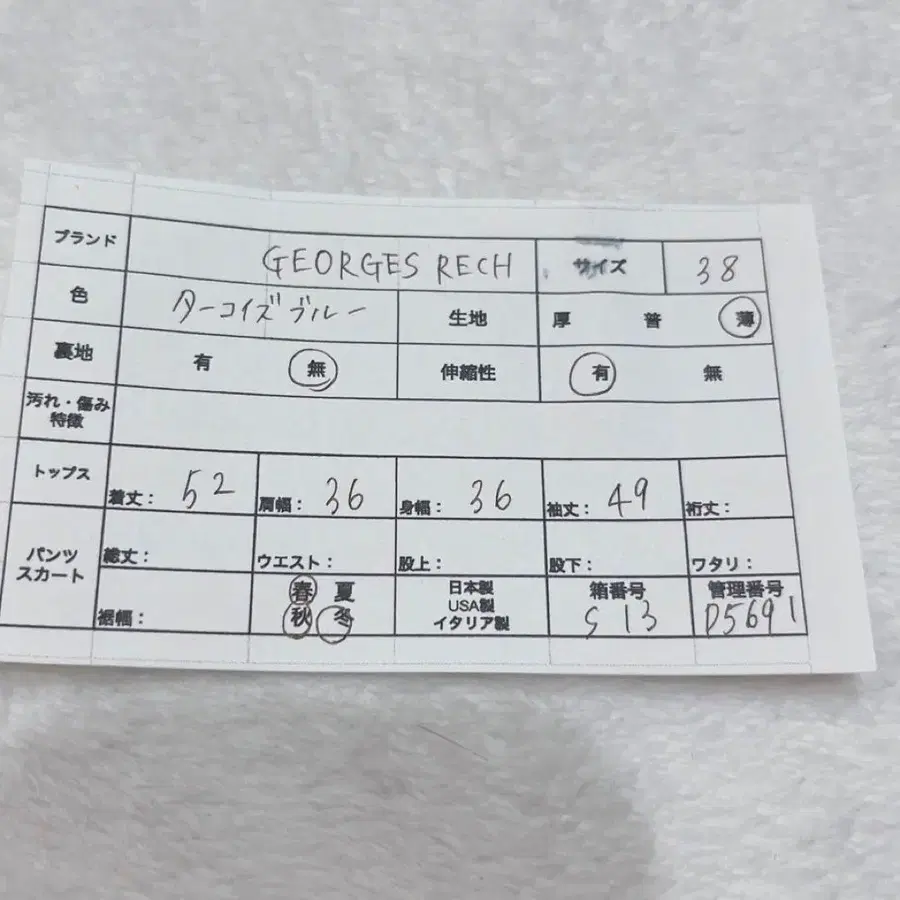 ブランド GEORGES RECH サイズ 38
色 ターコイズブルー 生地 厚 普 薄
裏地 有 無 伸縮性 有 無
汚れ・傷み
特徴
トップス 着丈: 52 肩幅: 36 身幅: 36 袖丈: 49 裄丈:
パンツ
スカート
総丈: ウエスト: 股上: 股下: ワタリ:
裾幅:
春 夏
秋 冬
日本製
USA製
イタリア製
箱番号
S 13
管理番号
D5691